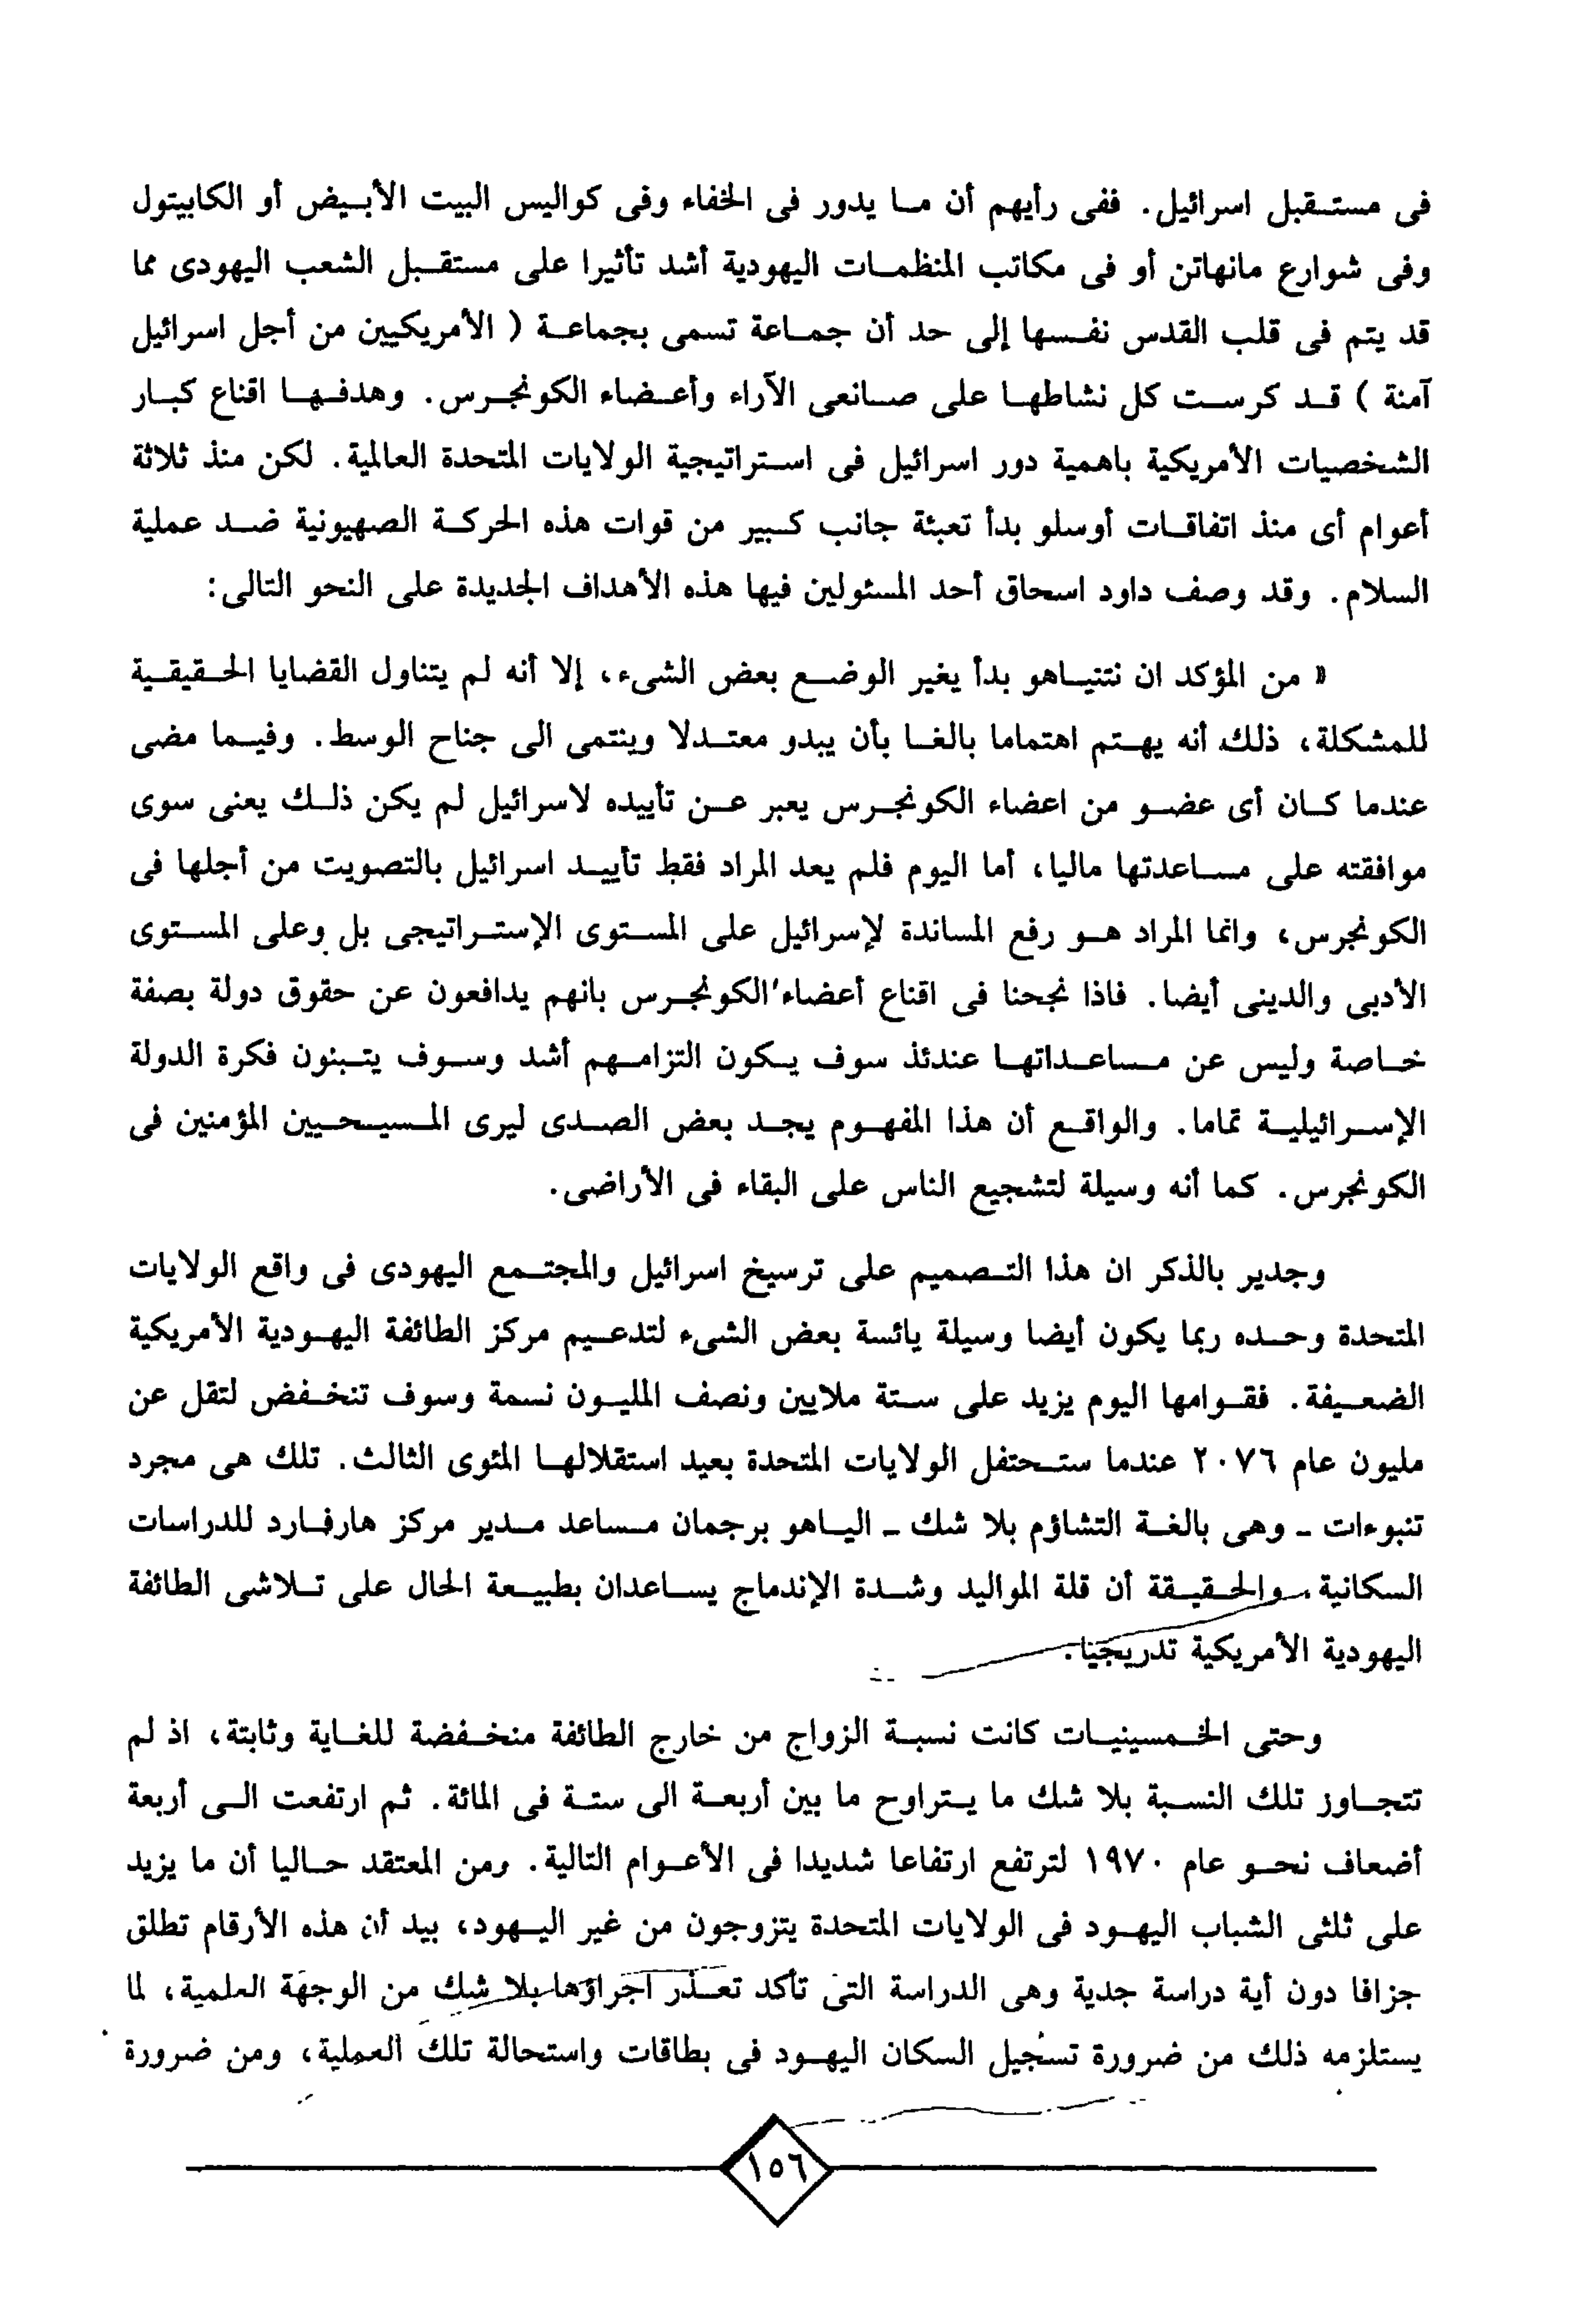 فى مستقبل اسرائيل. ففى رأيهم أن ما يدور فى الخفاء وفى كواليس البيت الأبيض أو الكابيتول
وفى شوارع مانهاتن أو فى مكاتب المنظمات اليهودية أشد تأثيرا على مستقبل الشعب اليهودى مما
قد يتم فى قلب القدس نفسها إلى حد أن جماعة تسمى بجماعة ( الأمريكيين من أجل اسرائيل
آمنة ) قد كرست كل نشاطها على صانعى الآراء وأعضاء الكونجرس. وهدفها اقناع كبار
الشخصيات الأمريكية باهمية دور اسرائيل فى استراتيجية الولايات المتحدة العالمية. لكن منذ ثلاثة
أعوام أى منذ اتفاقات أوسلو بدأ تعبئة جانب كبير من قوات هذه الحركة الصهيونية ضد عملية
السلام. وقد وصف داود اسحاق أحد المسئولين فيها هذه الأهداف الجديدة على النحو التالى:
« من المؤكد ان نتنياهو بدأ يغير الوضع بعض الشىء، إلا أنه لم يتناول القضايا الحقيقية
للمشكلة، ذلك أنه يهتم اهتماما بالغا بأن يبدو معتدلا وينتمى الى جناح الوسط. وفيما مضى
عندما كان أى عضو من اعضاء الكونجرس يعبر عن تأييده لاسرائيل لم يكن ذلك يعنى سوى
موافقته على مساعدتها ماليا، أما اليوم فلم يعد المراد فقط تأييد اسرائيل بالتصويت من أجلها فى
الكونجرس، وانما المراد هو رفع المساندة لإسرائيل على المستوى الإستراتيجى بل وعلى المستوى
الأدبى والدينى أيضا. فاذا نجحنا فى اقناع أعضاء الكونجرس بانهم يدافعون عن حقوق دولة بصفة
خاصة وليس عن مساعداتها عندئذ سوف يكون التزامهم أشد وسوف يتبنون فكرة الدولة
الإسرائيلية تماما. والواقع أن هذا المفهوم يجد بعض الصدى ليرى المسيحيين المؤمنين فى
الكونجرس. كما أنه وسيلة لتشجيع الناس على البقاء فى الأراضى.
وجدير بالذكر ان هذا التصميم على ترسيخ اسرائيل والمجتمع اليهودى فى واقع الولايات
المتحدة وحده ربما يكون أيضا وسيلة يائسة بعض الشىء لتدعيم مركز الطائفة اليهودية الأمريكية
الضعيفة. فقوامها اليوم يزيد على ستة ملايين ونصف المليون نسمة وسوف تنخفض لتقل عن
مليون عام ٢٠٧٦ عندما ستحتفل الولايات المتحدة بعيد استقلالها المئوى الثالث. تلك هى مجرد
تنبوءات ـ وهى بالغة التشاؤم بلا شك ـ الياهو برجمان مساعد مدير مركز هارفارد للدراسات
السكانية. والحقيقة أن قلة المواليد وشدة الإندماج يساعدان بطبيعة الحال على تلاشى الطائفة
اليهودية الأمريكية تدريجيا.
وحتى الخمسينيات كانت نسبة الزواج من خارج الطائفة منخفضة للغاية وثابتة، اذ لم
تتجاوز تلك النسبة بلا شك ما يتراوح ما بين أربعة الى ستة فى المائة. ثم ارتفعت الى أربعة
أضعاف نحو عام ١٩٧٠ لترتفع ارتفاعا شديدا فى الأعوام التالية. ومن المعتقد حاليا أن ما يزيد
على ثلثى الشباب اليهود فى الولايات المتحدة يتزوجون من غير اليهود، بيد أن هذه الأرقام تطلق
جزافا دون أية دراسة جدية وهى الدراسة التى تأكد تعذر اجراؤها بلا شك من الوجهة العلمية، لما
يستلزمه ذلك من ضرورة تسجيل السكان اليهود فى بطاقات واستحالة تلك العملية، ومن ضرورة
١٥٦